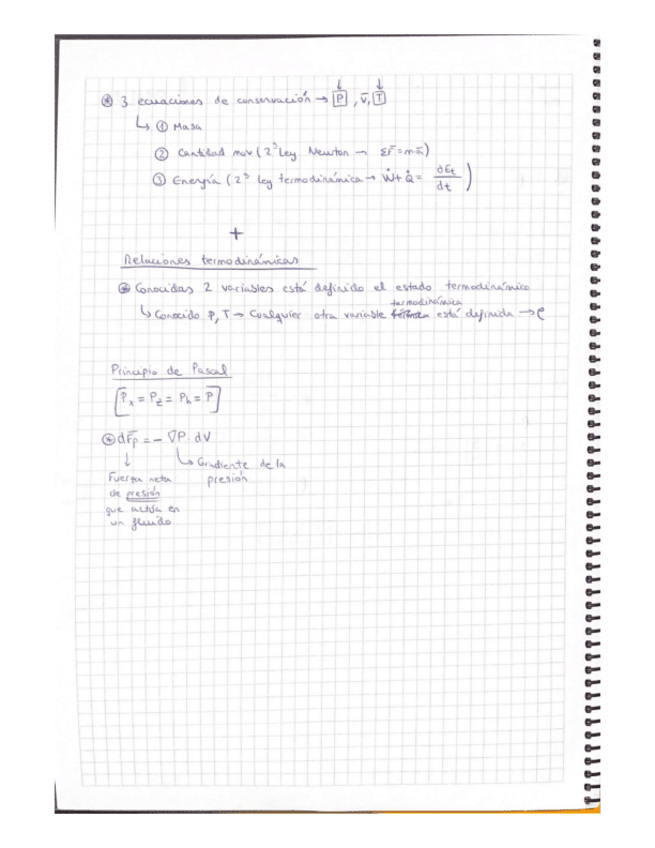 ⊛ 3 ecuaciones de conservación → P, v̄, T
↳ ① Masa
② Cantidad mov (2ª Ley Newton → ΣF̄ = m·ā)
③ Energía (2ª ley termodinámica → Ẇ + Q̇ = dEt/dt)
+
Relaciones termodinámicas
⊛ Conocidas 2 variables está definido el estado termodinámico
termodinámica
↳ Conocido P, T → Cualquier otra variable está definida → ρ
Principio de Pascal
[Px = Pz = Pn = P]
⊛ dF̄p = - ∇P · dV
↓ ↳ Gradiente de la
Fuerza neta presión
de presión
que actúa en
un fluido